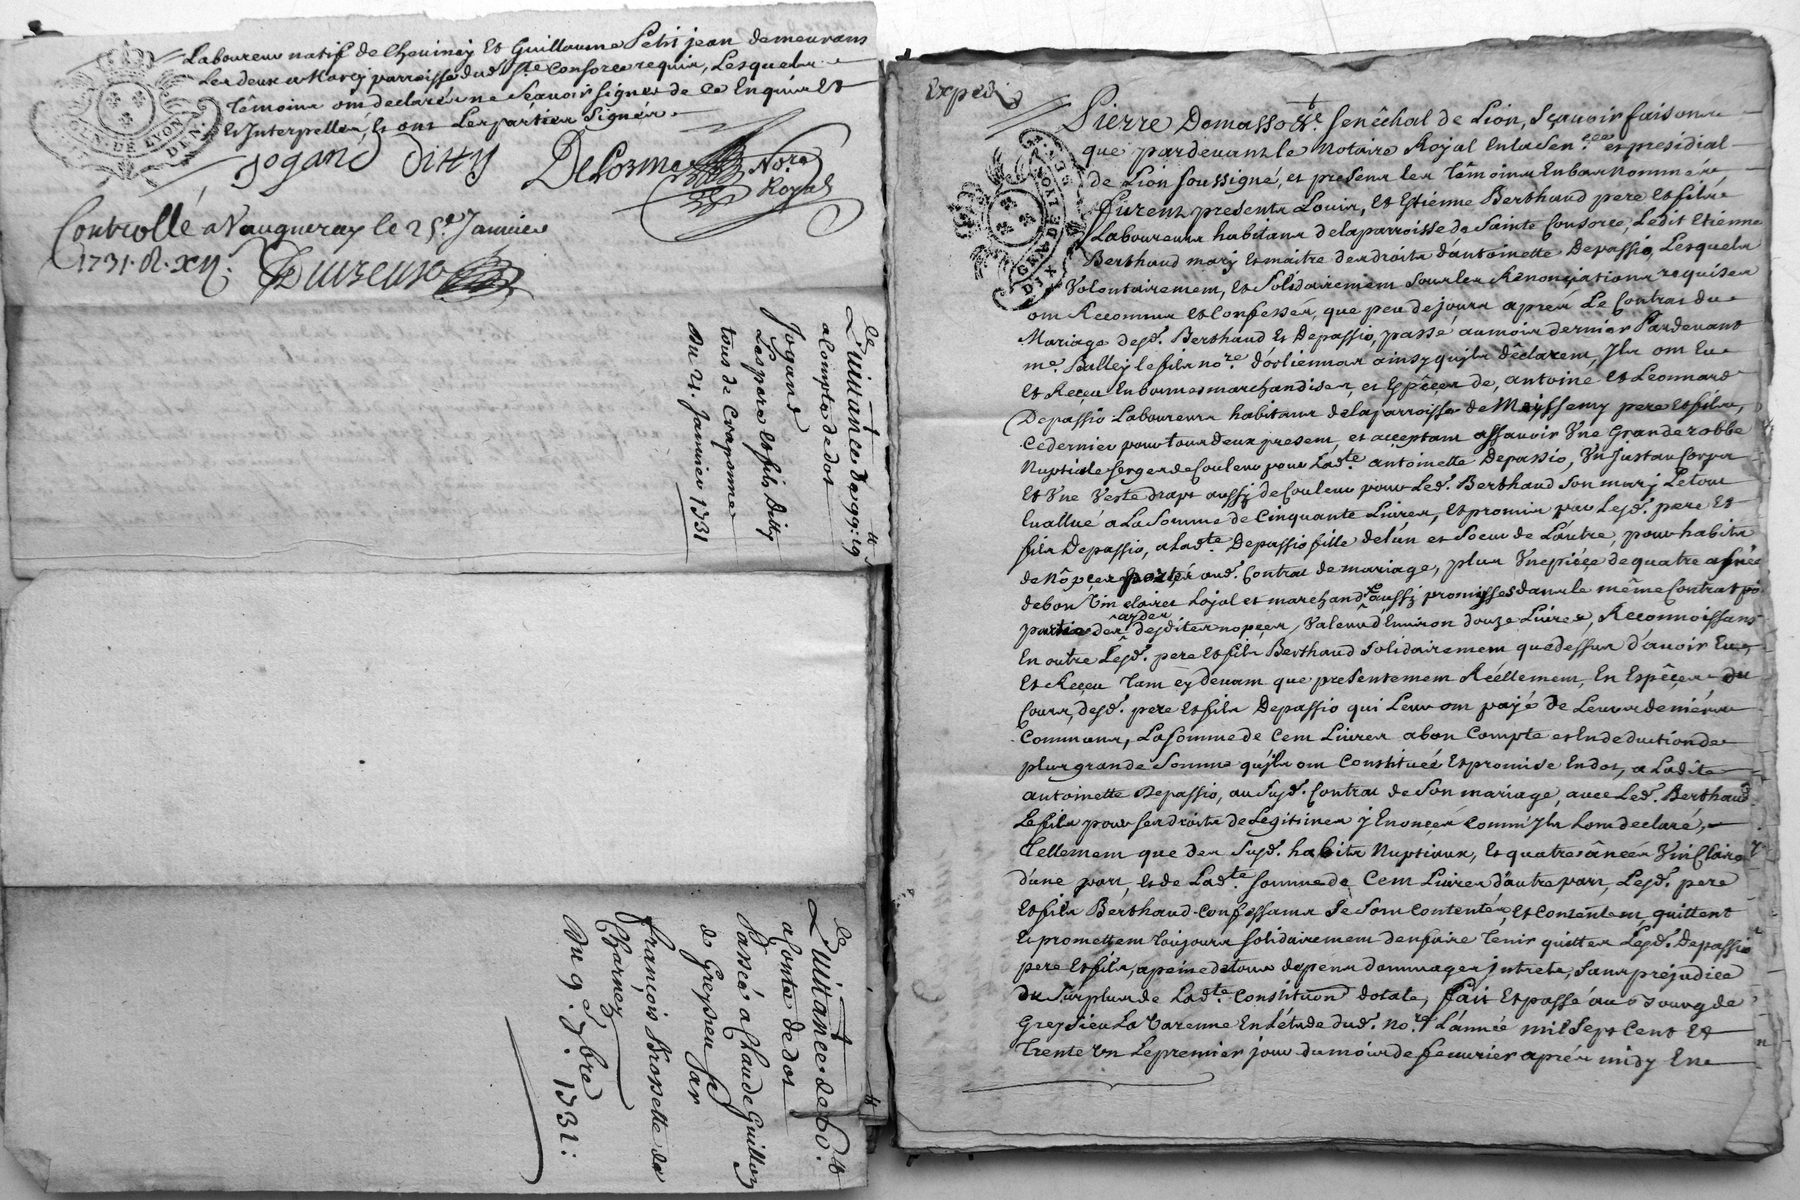 Laboureur natif de Chevinay Et Guillaume Petit jean demeurans
Les deux a Marcy parroisse dud. Ste Consorce requis, Lesquels
têmoins ont declaré ne Sçavoir signer de ce Enquis Et
Et Interpellés, Et ont Les parties Signér.
GEN. DE LYON
DIX DEN.
Jogand Ditty Delorme Nore
Royal
Controllé a Vaugneray le 25e Janvier
1731. R. xii s.
de
Quittance de 99: 19
a Compte de dot
Jogand
Les pere et fils Ditty
tous de Craponne
du 21. Janvier 1731
de
Quittance de 60.
a Conte de dot
Passéé a Claude Guillon
de Greysieu Par
françois Brossette de
Charnez
Du 9e. 7bre 1731:
Expedié
Pierre Domasso Ste. Senêchal de Lion, Sçavoir faisons
que pardevant le Notaire Royal En la Sen.cée et presidial
de Lion soussigné, et present les Têmoins En bas nommér,
furent presents Louis, Et Etienne Berthaud pere Et fils
Laboureurs habitans de la parroisse de Sainte Consorce, Ledit Etienne
Berthaud mary Et maitre des droits d'antoinette Depassio, Lesquels
Volontairement, Et Solidairement sous les Renonciations requises
ont Reconnu Et Confessér, que peu de jours aprés Le Contrat du
Mariage desd. Berthaud Et Depassio, passé au mois dernier Pardevant
me. Bulley le fils nore. d'orlienas ainsy qu'ils dêclarent, Ils ont Eu
Et Reçeu En bonnes marchandises, et Espêces de, antoine Et Leonnard
Depassio Laboureurs habitans de la parroisse de Meyssemy pere Et fils,
ce dernier pour tous deux present, et acceptant assavoir Une Grande robbe
Nuptiale serge de Couleur pour Ladte. antoinette Depassio, Un Justaucorps
Et Une Veste drapt aussy de Couleur pour Led. Berthaud Son mary Letout
Evallué a La Somme de Cinquante Livres, Et promis par Lesd. pere Et
fils Depassio, a Ladte. Depassio fille de lún et Soeur de Lautre, pour habits
de nôpces portés aud. Contrat de mariage, plus Une piéçe de quatre asnées
de bon Vin clairet Loyal et marchand aussy promisses dans le même Contrat po.
partie des desdites nopçes, Valeur d'Environ douze Livres, Reconnoissans
En outre Lesd. pere Et fils Berthaud Solidairement que dessus d'avoir Eu,
Et Reçeu tant cy devant que presentement Réellement, En Espêçes du
Cours, desd. pere Et fils Depassio qui Leur ont payé de Leurs deniérs
Communs, La Somme de Cent Livres a bon Compte et En deduction de
plus grande Somme qu'ils ont Constituéé Et promise En dot, a Ladite
antoinette Depassio, au Susd. Contrat de Son mariage, avec Led. Berthaud
Le fils pour ses droits de Legitimes y Enoncés Comm'Ils L'ont declaré,
Tellement que des Susd. habits Nuptiaux, Et quatre ânéés Vin Clairet
d'une part, Et de Ladte. Somme de Cent Livres d'autre part, Lesd. pere
Et fils Berthaud Confessants Se Sont contentés, Et contentent, quittent
Et promettent toujours Solidairement d'en faire tenir quittes Lesd. Depassio
pere Et fils, a peine de tous depens dommages intrets, Sans préjudice
du Surplus de Ladte. Constitution dotale, fait Et passé au Bourg de
Greysieu La Varenne En L'étude dud. nore L'année mil Sept Cent Et
Trente Un Le premier jour du mois de fevrier aprés midy En